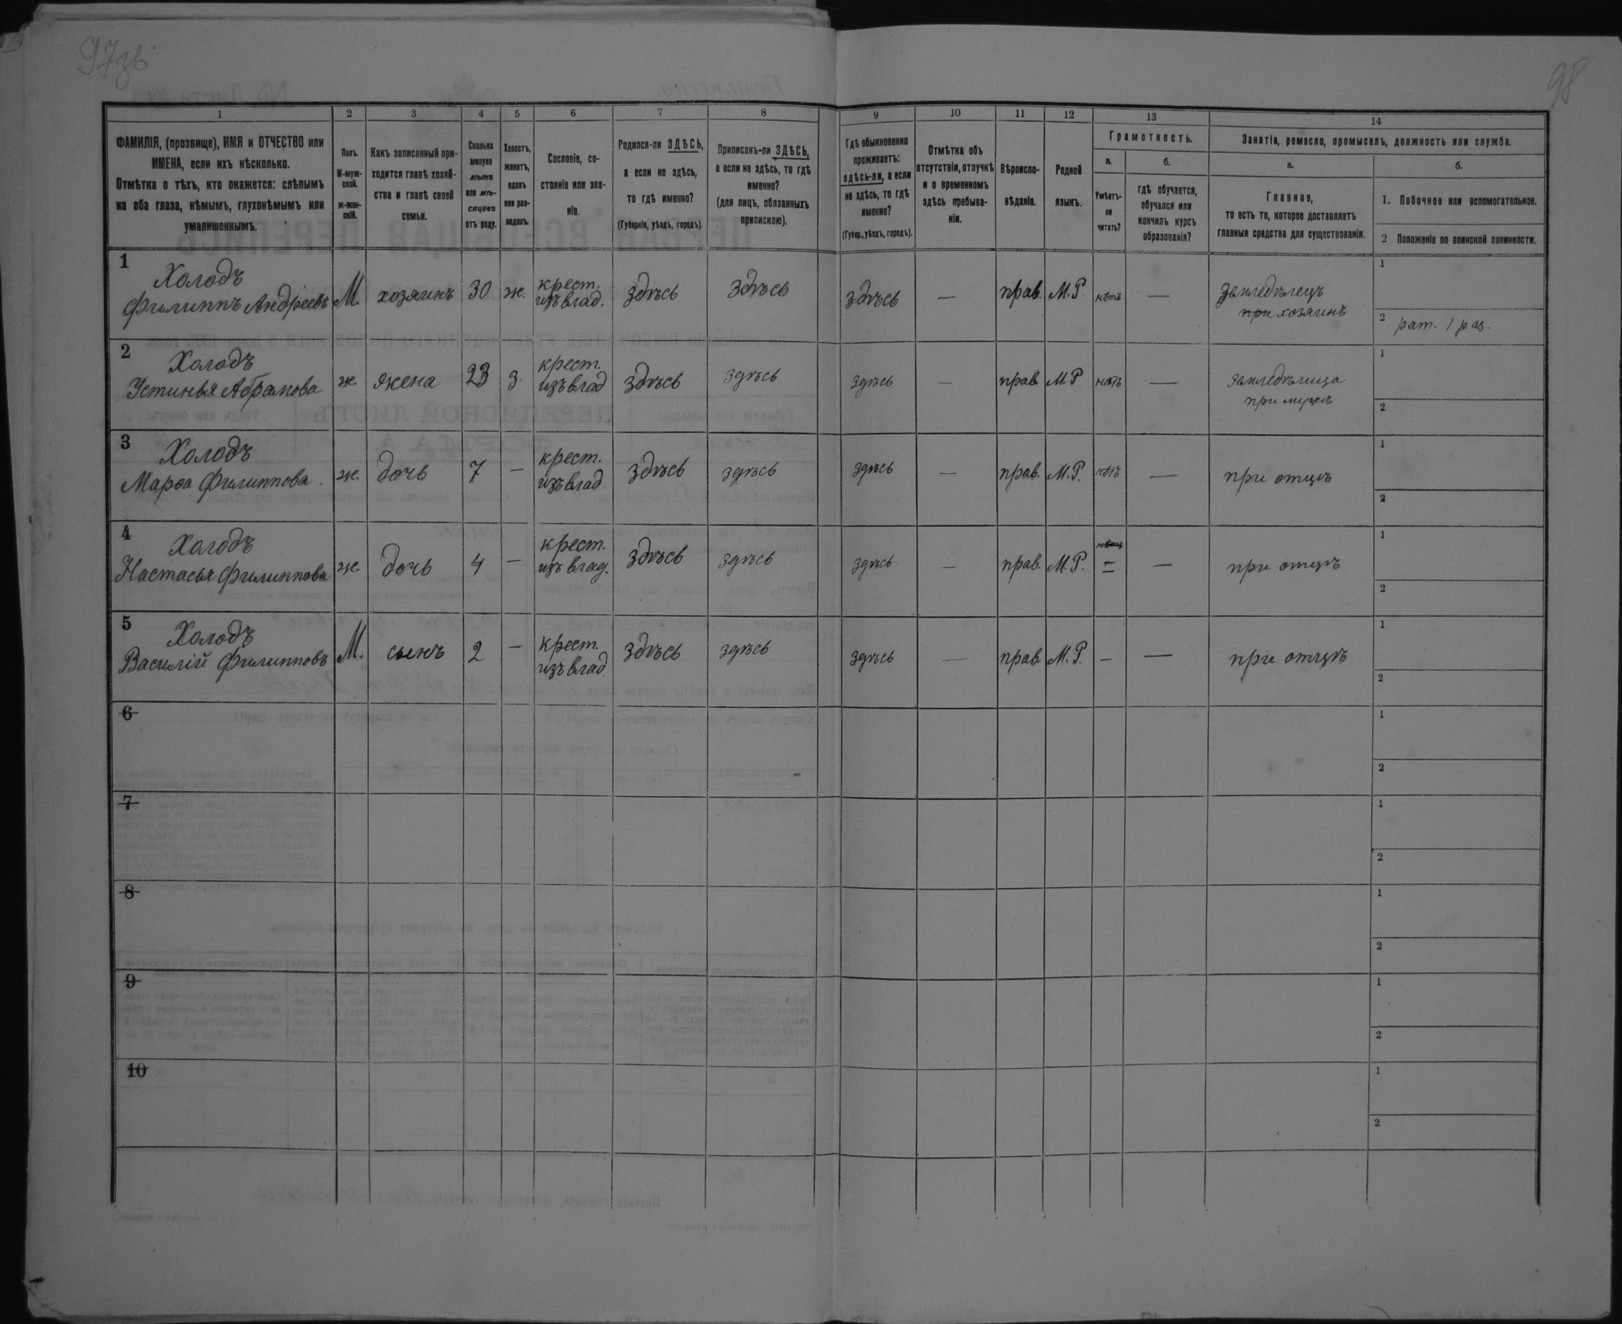 97зв
98
1
2
3
4
5
6
7
8
9
10
11
12
13
14
ФАМИЛІЯ, (прозвище), ИМЯ и ОТЧЕСТВО или
ИМЕНА, если ихъ нѣсколько.
Отмѣтка о тѣхъ, кто окажется: слѣпымъ
на оба глаза, нѣмымъ, глухонѣмымъ или
умалишеннымъ.
Полъ.
М-муж-
ской.
ж-жен-
скій.
Какъ записанный при-
ходится главѣ хозяй-
ства и главѣ своей
семьи.
Сколько
минуло
лѣтъ
или мѣ-
сяцевъ
отъ роду.
Холостъ,
женатъ,
вдовъ
или раз-
веденъ.
Сословіе, со-
стояніе или зва-
ніе.
Родился-ли ЗДѢСЬ,
а если не здѣсь,
то гдѣ именно?
(Губернія, уѣздъ, городъ).
Приписанъ-ли ЗДѢСЬ,
а если не здѣсь, то гдѣ
именно?
(для лицъ, обязанныхъ
припискою).
Гдѣ обыкновенно
проживаетъ:
здѣсь-ли, а если
не здѣсь, то гдѣ
именно?
(Губер., уѣздъ, городъ).
Отмѣтка объ
отсутствіи, отлучкѣ
и о временномъ
здѣсь пребыва-
ніи.
Вѣроиспо-
вѣданіе.
Родной
языкъ.
Грамотность.
а.
Умѣетъ-
ли
читать?
б.
гдѣ обучается,
обучался или
кончилъ курсъ
образованія?
Занятіе, ремесло, промыселъ, должность или служба.
а.
Главное,
то есть то, которое доставляетъ
главныя средства для существованія.
б.
1. Побочное или вспомогательное.
2 Положеніе по воинской повинности.
1
Холодъ
Филиппъ Андреевъ М хозяинъ 30 ж. крест. изъ влад. здѣсь здѣсь здѣсь — прав. М.Р. нѣтъ — земледѣлецъ
при хозяинъ
1
2 рат. 1 раз.
2
Холодъ
Устинья Абрамова ж. жена 23 з. крест. изъ влад здѣсь здѣсь здѣсь — прав М.Р нѣтъ — земледѣлица
при мужѣ
1
2
3
Холодъ
Марѳа Филиппова. ж. дочь 7 — крест. изъ влад здѣсь здѣсь здѣсь — прав. М.Р. нѣтъ — при отцѣ
1
2
4
Холодъ
Настасья Филиппова ж. дочь 4 — крест. изъ влад. здѣсь здѣсь здѣсь. — прав. М.Р. — — при отцѣ
1
2
5
Холодъ
Василій Филипповъ М. сынъ 2 — крест. изъ влад здѣсь здѣсь здѣсь — прав М.Р. — — при отцѣ
1
2
6
1
2
7
1
2
8
1
2
9
1
2
10
1
2